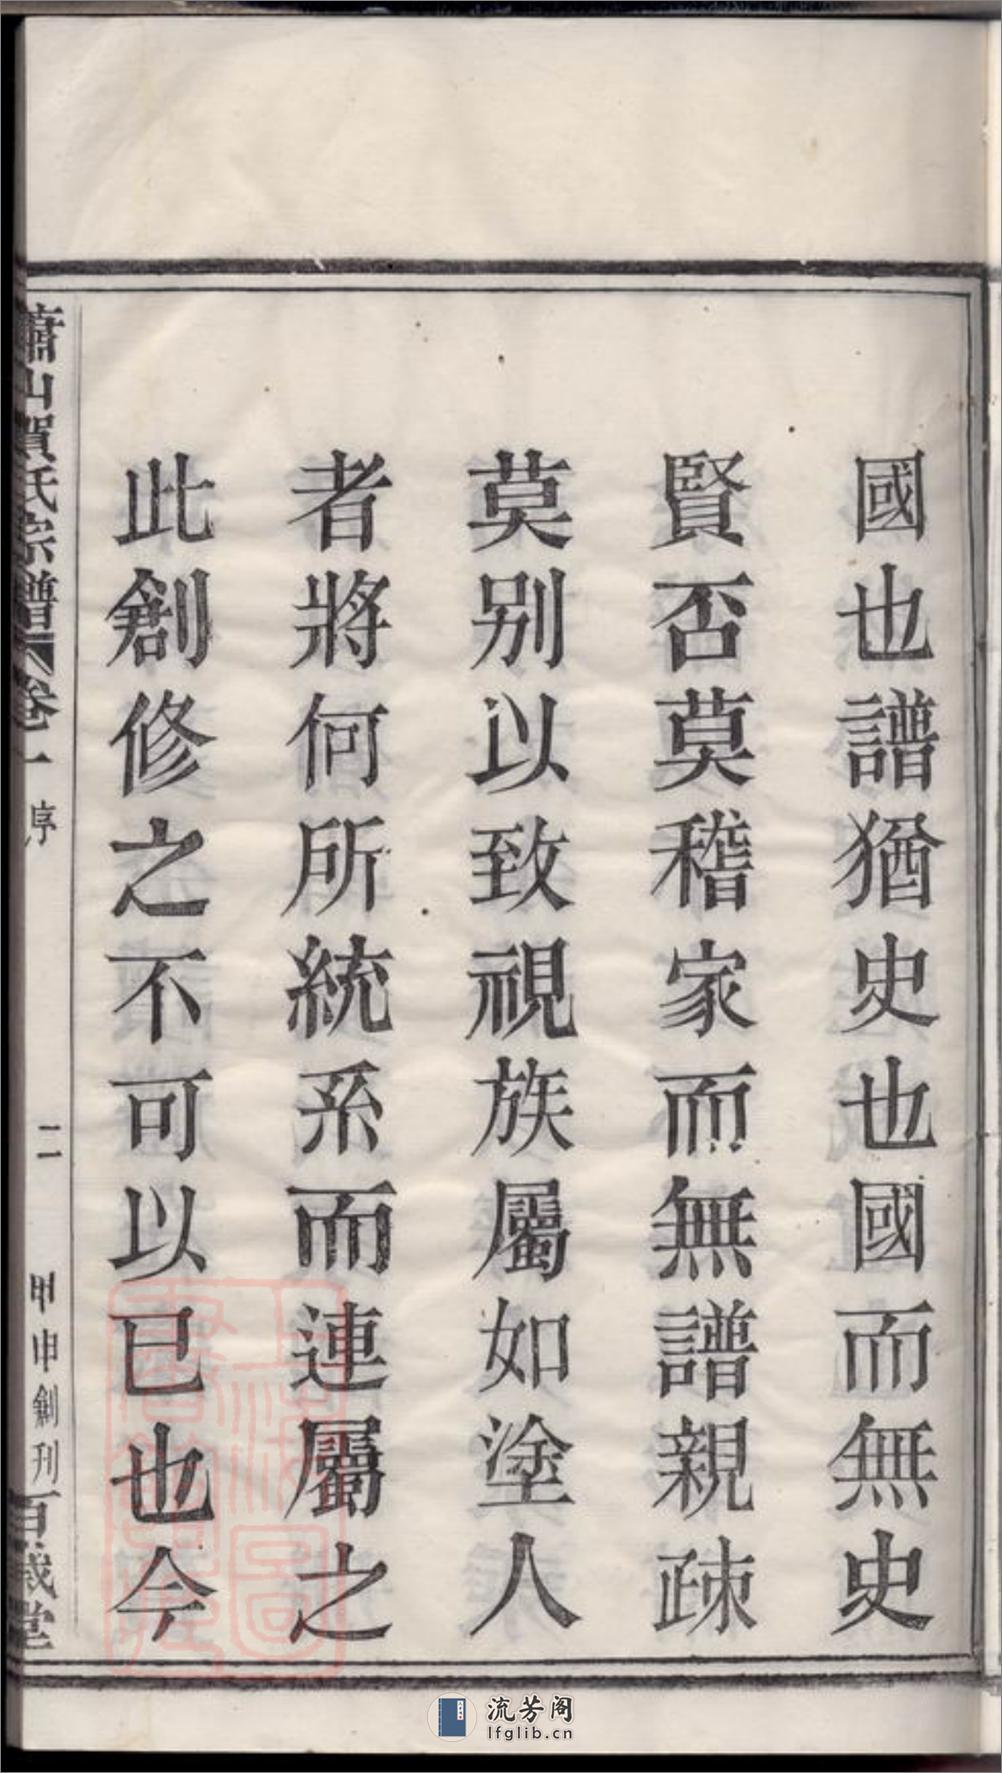 國也譜猶史也國而無史
賢否莫稽家而無譜親疎
莫别以致視族屬如塗人
者將何所統系而連屬之
此創修之不可以已也今
蕭山賀氏宗譜 卷一 序 二 甲申創刊 百歲堂
流芳阁
lfglib.cn